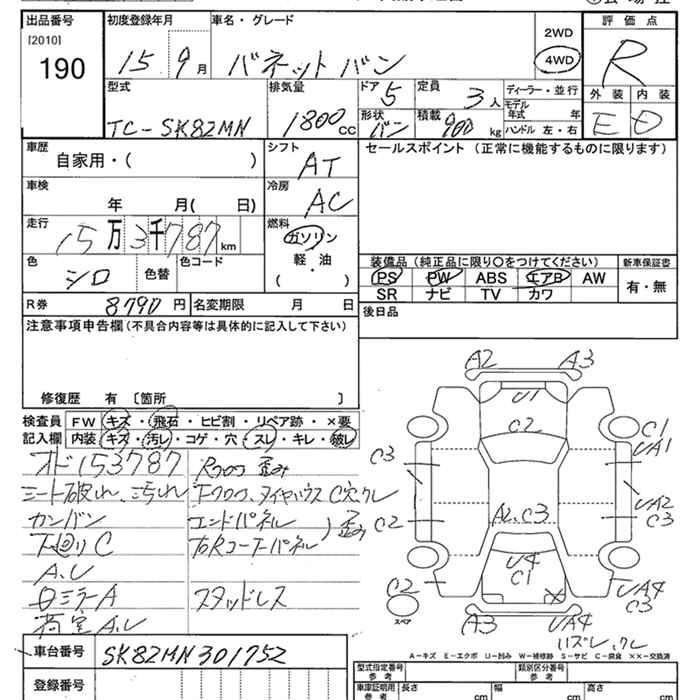 出品番号 初度登録年月 車名・グレード 2WD 評価点
[2010] 15 9月 バネットバン 4WD R
190
型式 排気量 ドア 5 定員 3人 ディーラー・並行 外装 内装
TC-SK82MN 1800cc 形状 バン 積載 900kg モデル年式 年 E D
ハンドル 左・右
車歴 シフト セールスポイント (正常に機能するものに限ります)
自家用・( ) AT
車検 冷房
年 月( 日) AC
走行 燃料
15万3千787km ガソリン
軽・油
( )
色 シロ 色替 色コード
装備品 (純正品に限り○をつけてください) 新車保証書
PS PW ABS エアB AW 有・無
SR ナビ TV カワ
R券 8790円 名変期限 月 日 後日品
注意事項申告欄 (不具合内容等は具体的に記入して下さい)
修復歴 有 〔箇所 〕
検査員 FW キズ・飛石・ヒビ割・リペア跡・×要
記入欄 内装 キズ・汚レ・コゲ・穴・スレ・キレ・破レ
オド153787
シート破れ、汚られ
カンバン
下廻りC
A.U
ロミラーA
荷室A.U
Rフロア歪み
Fフロア、タイヤハウスC穴クレ
エンドパネル
右Rコーナーパネル 歪み
スタッドレス
A2 A3
U1
C2
C1
UA1
C3
UA2
C3
C2
A2.C3
U4
C1
C2
UA4
C3
スペア
A3 UA4
ハズレ、クレ
A-キズ E-エクボ U-凹み W-補修跡 S-サビ C-腐食 ××-交換済
車台番号 SK82MN301752
登録番号
型式指定番号 参考 類別区分番号 参考
車庫証明用 参考 長さ cm 幅 cm 高さ cm